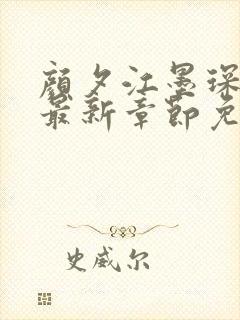 顾夕江墨琛
最新章节免
史威尔